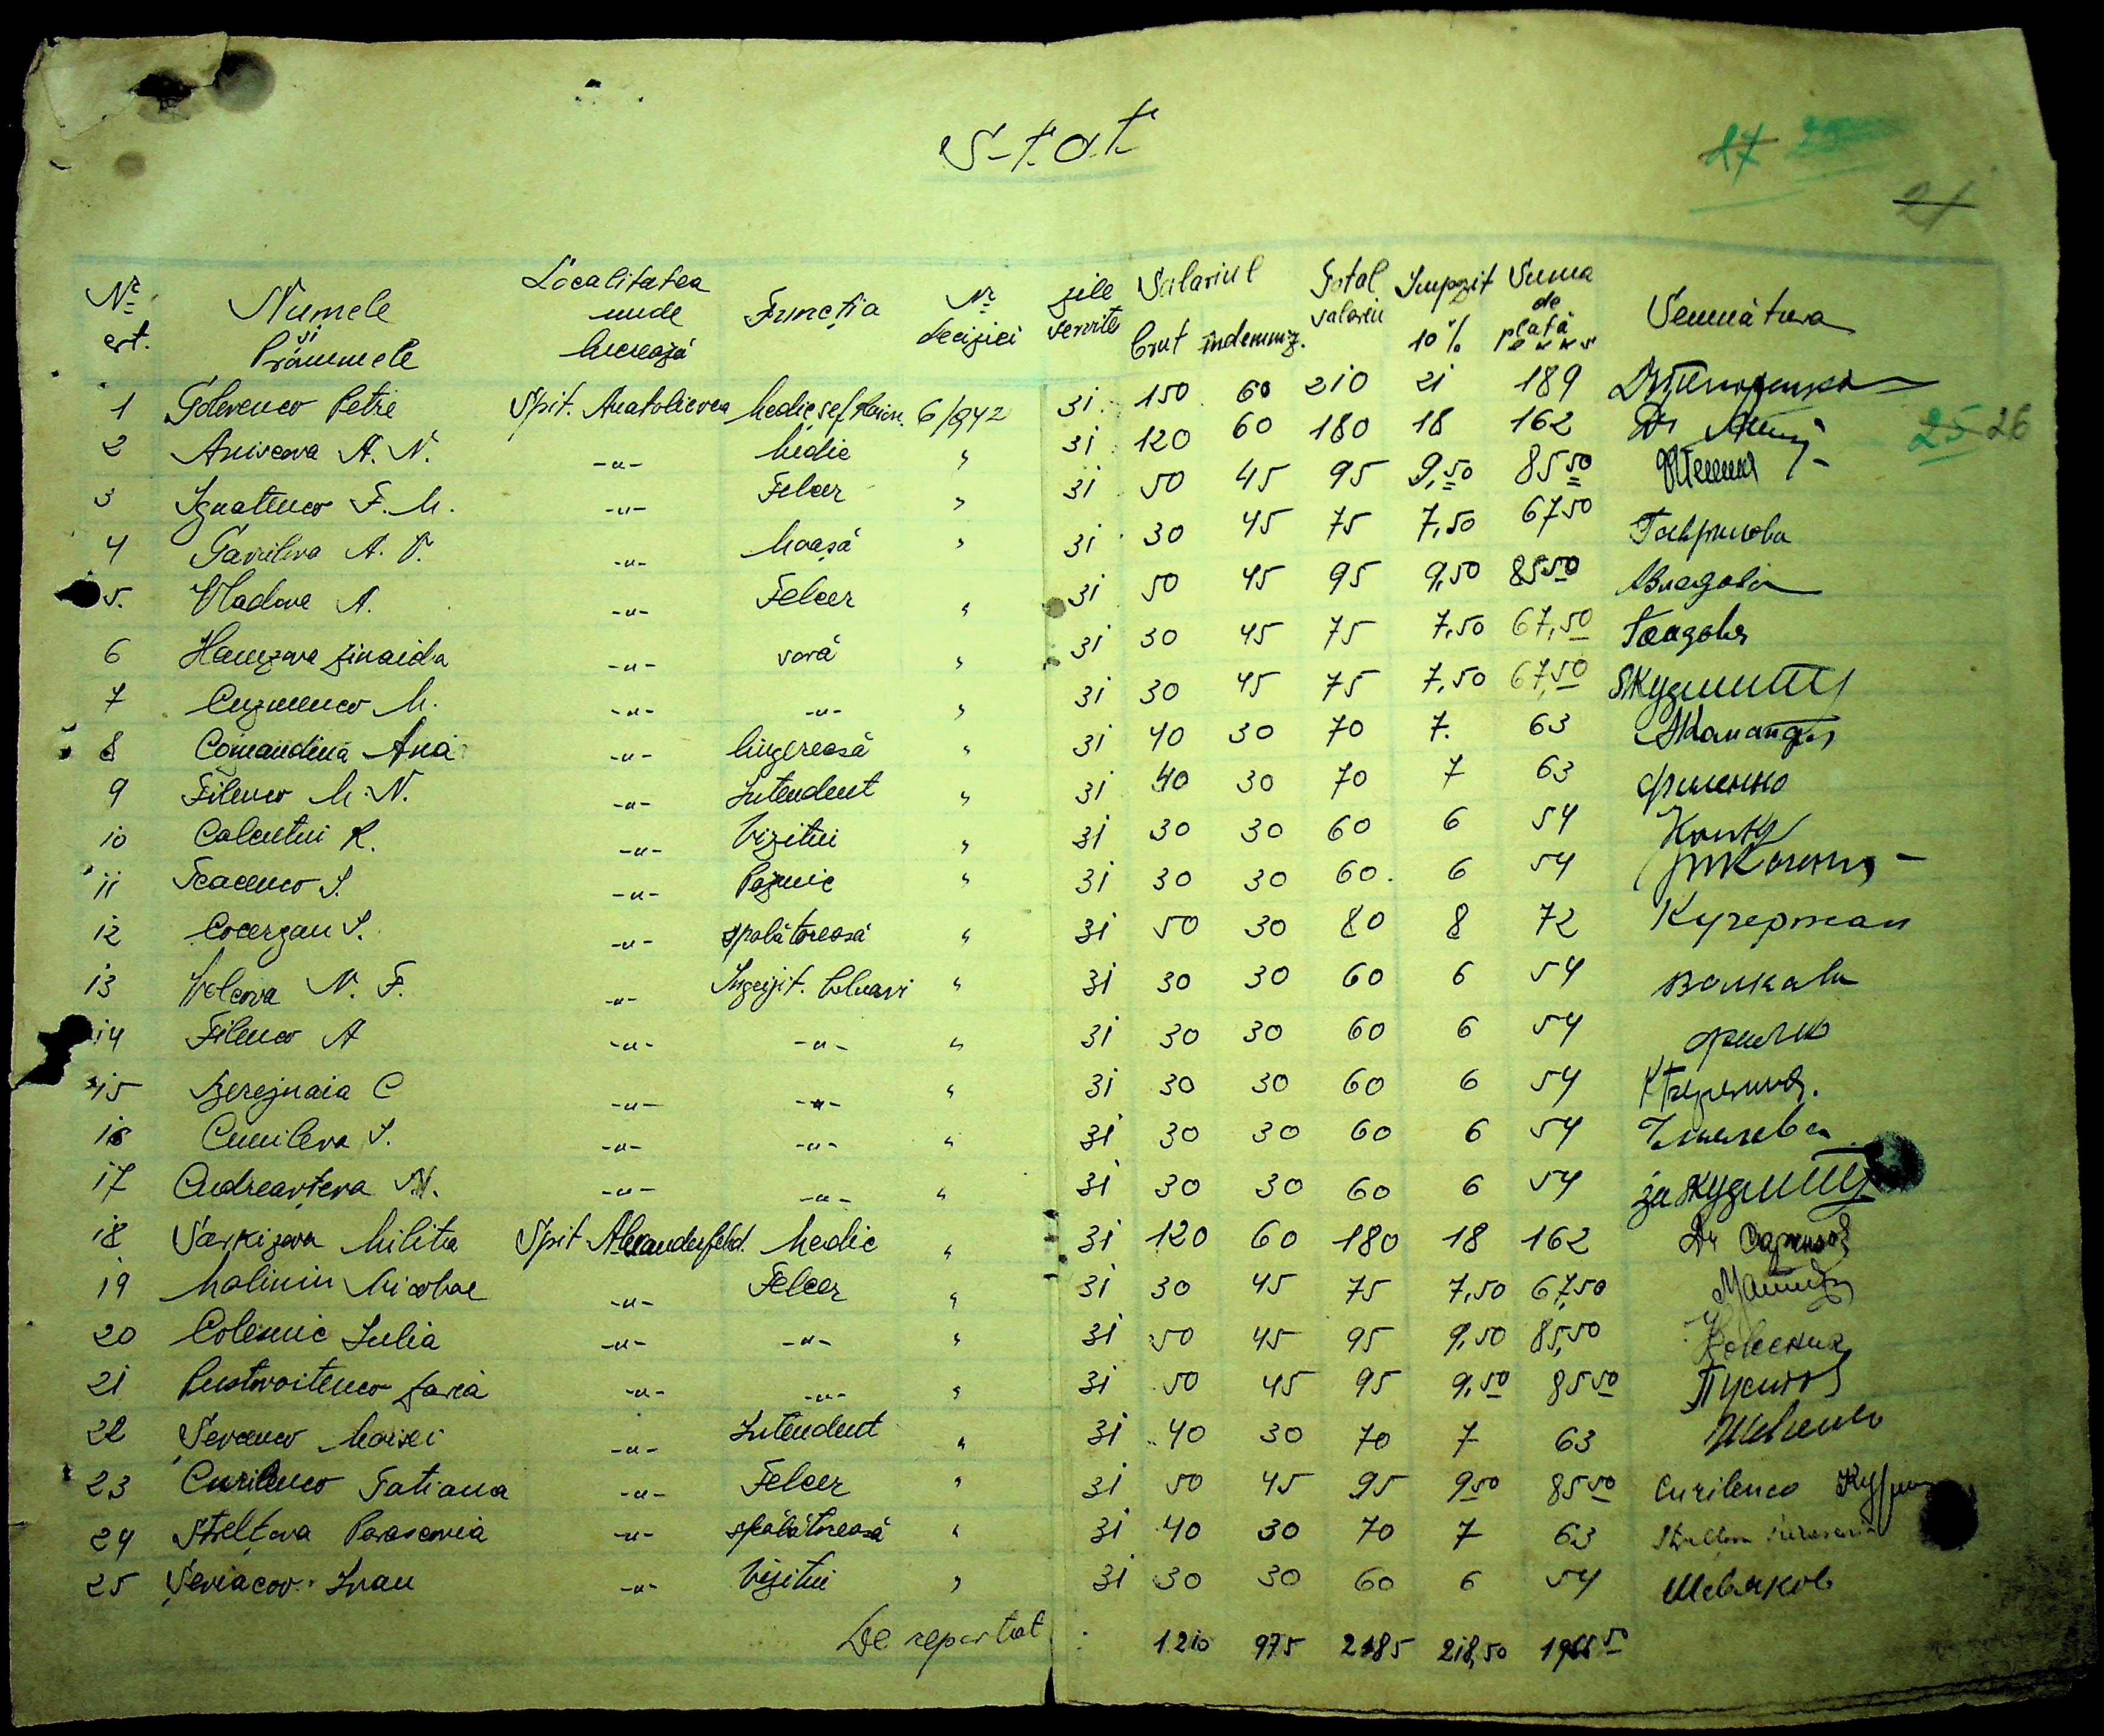 Stat
27 25
21
Nr. crt. Numele și Pronumele Localitatea unde lucrează Funcția Nr. deciziei zile servite Salariul brut indemniz. Total salariu Impozit 10% Suma de plată Semnătura
1 Golovenco Petre Spit. Anatolievca Medic șef 6/942 31 150 60 210 21 189
25 26
2 Anisova A. N. -"- Medic " 31 120 60 180 18 162 Dr
3 Ignatenco F. M. -"- Felcer " 31 50 45 95 9,50 85 50
4 Gavrilova A. P. -"- Moașă " 31 30 45 75 7,50 67 50 Гаврилова
5. Vladova A. -"- Felcer " 31 50 45 95 9,50 85 50 Владова
6 Hamzova Zinaida -"- soră " 31 30 45 75 7,50 67,50
7 Cuzmenco M. -"- -"- " 31 30 45 75 7,50 67,50
8 Comandina Ana -"- lingereasă " 31 40 30 70 7. 63
9 Filenco M. N. -"- Intendent " 31 40 30 70 7 63 Филенко
10 Calentui R. -"- Vizitiu " 31 30 30 60 6 54
11 Tcacenco I. -"- Paznic " 31 30 30 60. 6 54
12 Cocerjan S. -"- spălătoreasă " 31 50 30 80 8 72 Кучержан
13 Volcova N. F. -"- Îngrijit. bolnavi " 31 30 30 60 6 54 Волкова
14 Filenco A -"- -"- " 31 30 30 60 6 54
15 Berejnaia C -"- -"- " 31 30 30 60 6 54
16 Cmileva S. -"- -"- " 31 30 30 60 6 54
17 Andreavțeva N. -"- -"- " 31 30 30 60 6 54 за
18 Sarkizova Militia Spit Alexanderfeld. Medic " 31 120 60 180 18 162 Dr
19 Malinin Nicolae -"- Felcer " 31 30 45 75 7,50 67,50
20 Colesnic Iulia -"- -"- " 31 50 45 95 9,50 85,50 Колесник
21 Pustovoitenco Daria -"- -"- " 31 50 45 95 9,50 85 50
22 Șevcenco Moisei -"- Intendent " 31 40 30 70 7 63
23 Curilenco Tatiana -"- Felcer " 31 50 45 95 9 50 85 50 Curilenco
24 Strelțova Parascovia -"- spălătoreasă " 31 40 30 70 7 63
25 Șeviacov Ivan -"- Vizitiu " 31 30 30 60 6 54 Шевяков
De reportat : 1210 975 2185 218,50 1966 50